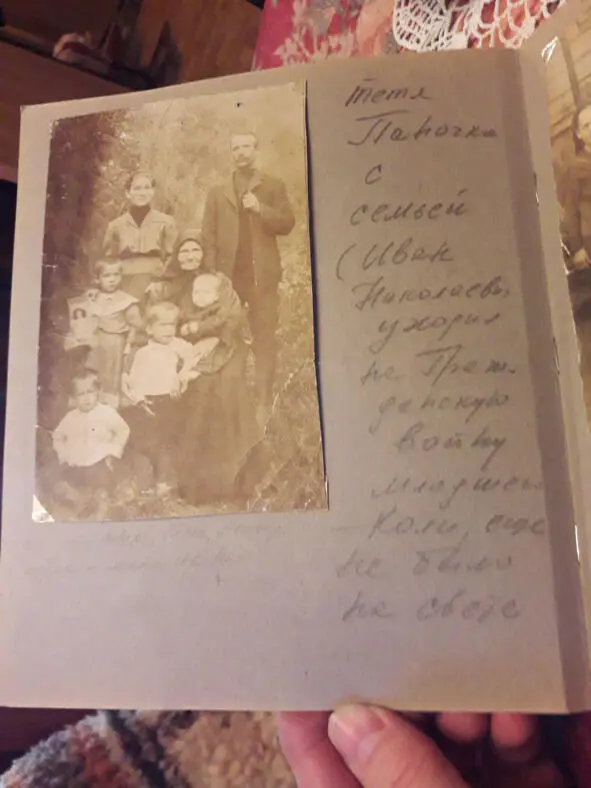 тетя
Паночка
с
семьей
(Иван
Николаевич
уходил
на Граж.
данскую
войну
младшего
— Коли, еще
не было
на свете